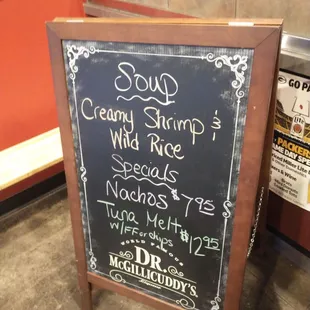 Soup
Creamy Shrimp &
Wild Rice
Specials
Nachos $7.95
Tuna Melt $12.95
W/FF or chips
WORLD FAMOUS
DR.
McGILLICUDDY'S
GO PA
PACKERS
GAME DAY SPE